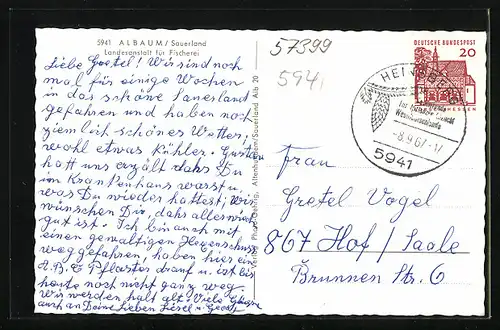 5941 ALBAUM / Sauerland
Landesanstalt für Fischerei
57399
5941
DEUTSCHE BUNDESPOST
20
HESSEN
-8.9.67.-17
5941
Liebe Gretel! Wir sind noch
mal für einige Wochen
in das schöne Sauerland
gefahren und haben noch
ziemlich schönes Wetter,
wohl etwas kühler. Gustav
hatt uns erzält dahs Du
im Krankenhaus warst u.
was Du wieder hattest, wir
wünschen Dir, dahs alles wieder
gut ist. Ich bin auch mit
einen gewaltigen Hexenschuss
weg gefahren, haben hier ein
A.B.C Pflaster drauf u. ist bis
heute noch nicht ganz weg.
Wir werden halt alt. Viele Grüsse
auch an Deine Lieben Liesel - Georg
Frau
Gretel Vogel
867 Hof / Saale
Brunnen Str. 6